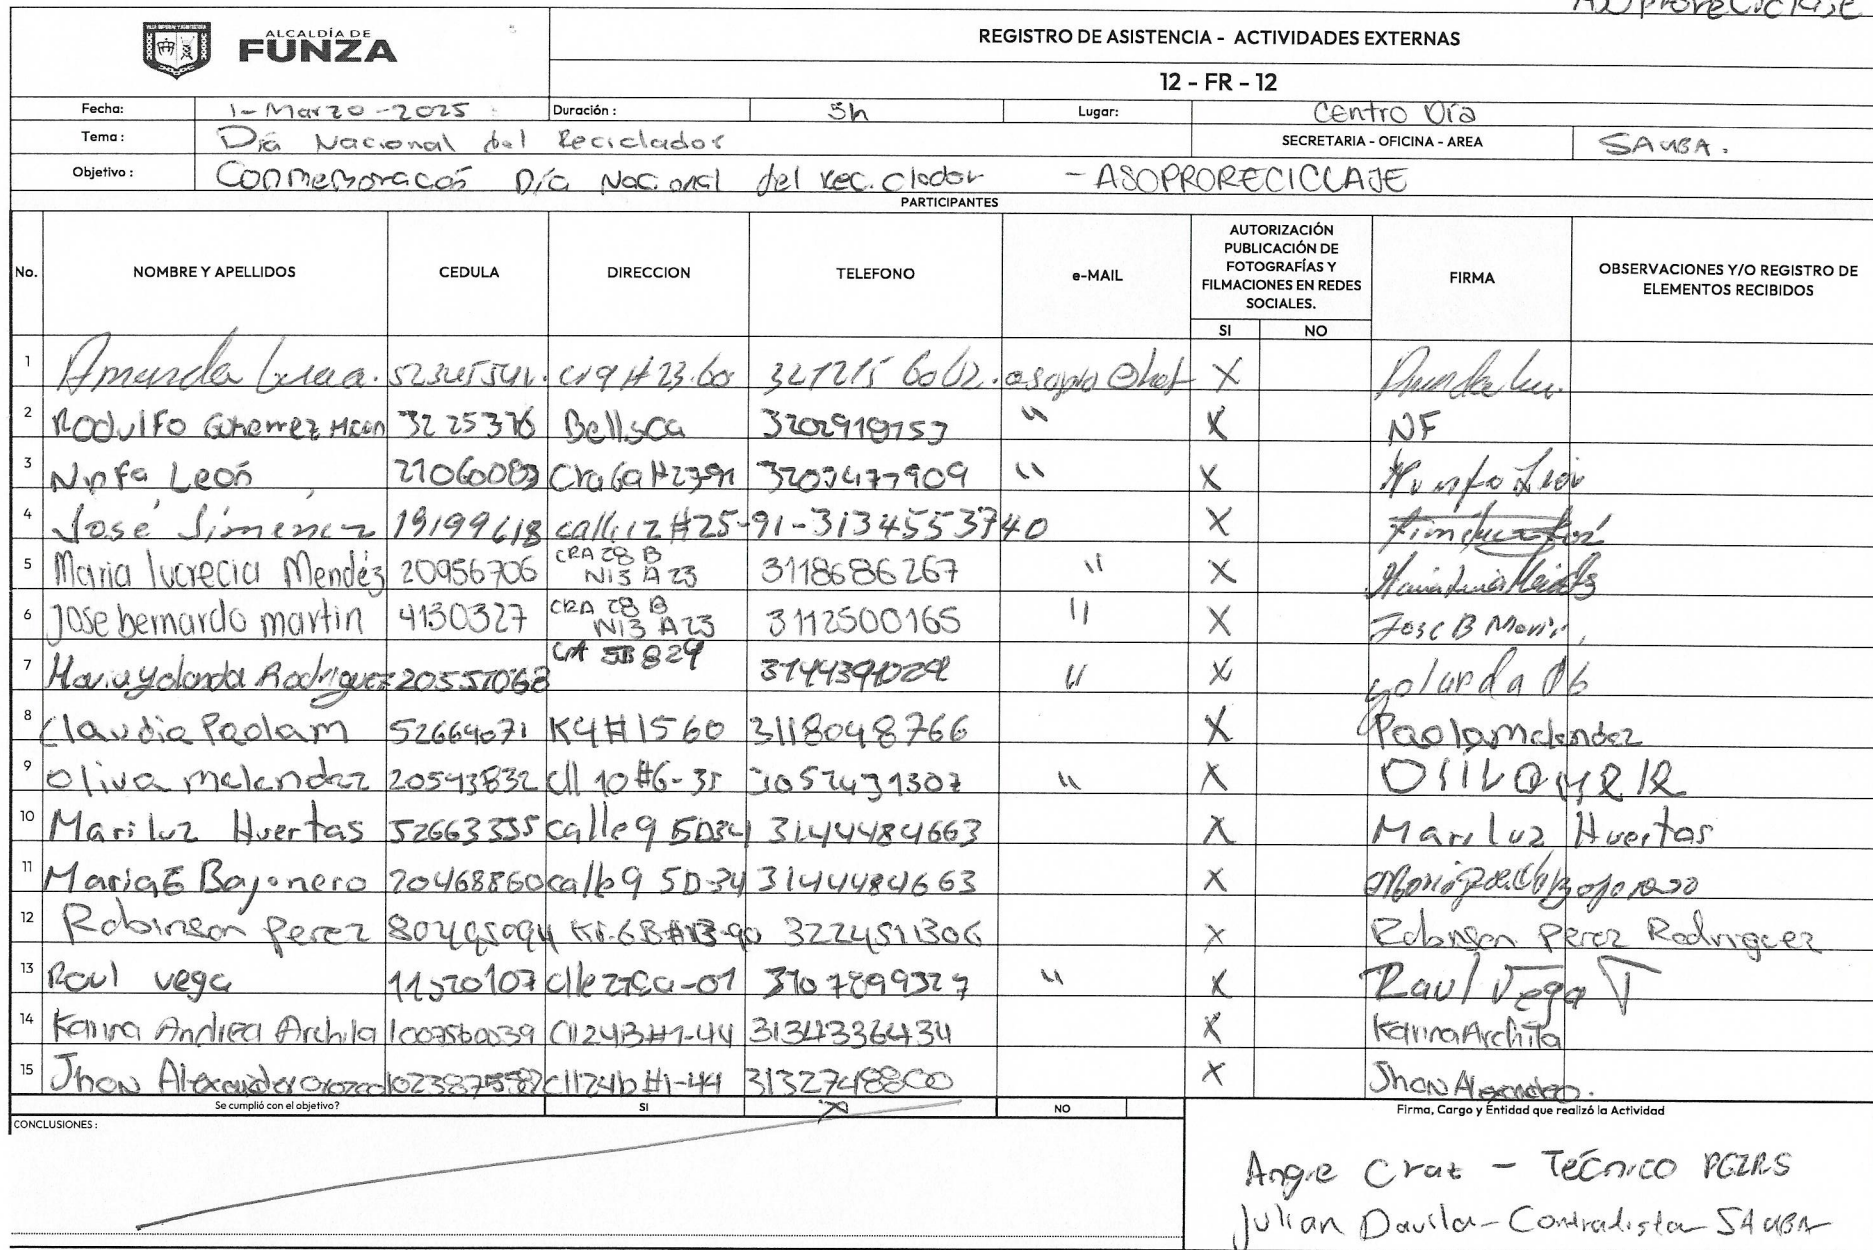 ASOproreciclase
ALCALDÍA DE
FUNZA
REGISTRO DE ASISTENCIA - ACTIVIDADES EXTERNAS
12 - FR - 12
Fecha: 1-Marzo-2025 Duración : 5h Lugar: Centro Día
Tema : Día Nacional del Reciclador SECRETARIA - OFICINA - AREA SAMBA.
Objetivo : Día Nacional del reciclador - ASOPRORECICLAJE
PARTICIPANTES
No. NOMBRE Y APELLIDOS CEDULA DIRECCION TELEFONO e-MAIL AUTORIZACIÓN PUBLICACIÓN DE FOTOGRAFÍAS Y FILMACIONES EN REDES SOCIALES. FIRMA OBSERVACIONES Y/O REGISTRO DE ELEMENTOS RECIBIDOS
SI NO
1 Amanda X
2 Rodulfo 3202919753 " X NF
3 León Cra 6a #27-91 3203477909 " X
4 José Jimenez 19199618 calle 12 #25-91-3134553740 X
5 Maria lucrecia Mendéz 20956706 CRA 28 B N13 A 23 3118686267 " X
6 Jose bernardo martin 4130327 CRA 28 B N13 A 23 3112500165 " X Jose B
7 Maria Yolanda Rodriguez 20557068 " X yolanda
8 Claudia Paola m 52664071 K4#15 60 3118048766 X Paola melendez
9 oliva melendez 20543832 cll 10 #6-35 3052431307 " X
10 Mari luz Huertas 52663335 calle 9 5D34 3144484663 X Mari luz Huertas
11 Maria E Bajonero 20468860 calle 9 5D-34 3144484663 X
12 Robinson Perez Kr.6B#13-90 3224511306 X Robinson Perez Rodriguez
13 Raul vega 11520107 3107899327 " X Raul Vega T
14 Karina Andrea Archila 1007560039 Cl 24B#1-44 3134336434 X Karina Archila
15 Jhon Alexander cll24b#1-44 3132748800 X Jhon Alexander.
Se cumplió con el objetivo? SI X NO
Firma, Cargo y Entidad que realizó la Actividad
CONCLUSIONES :
Angie Cruz - Técnico PGIRS
Julian Davila - Contratista